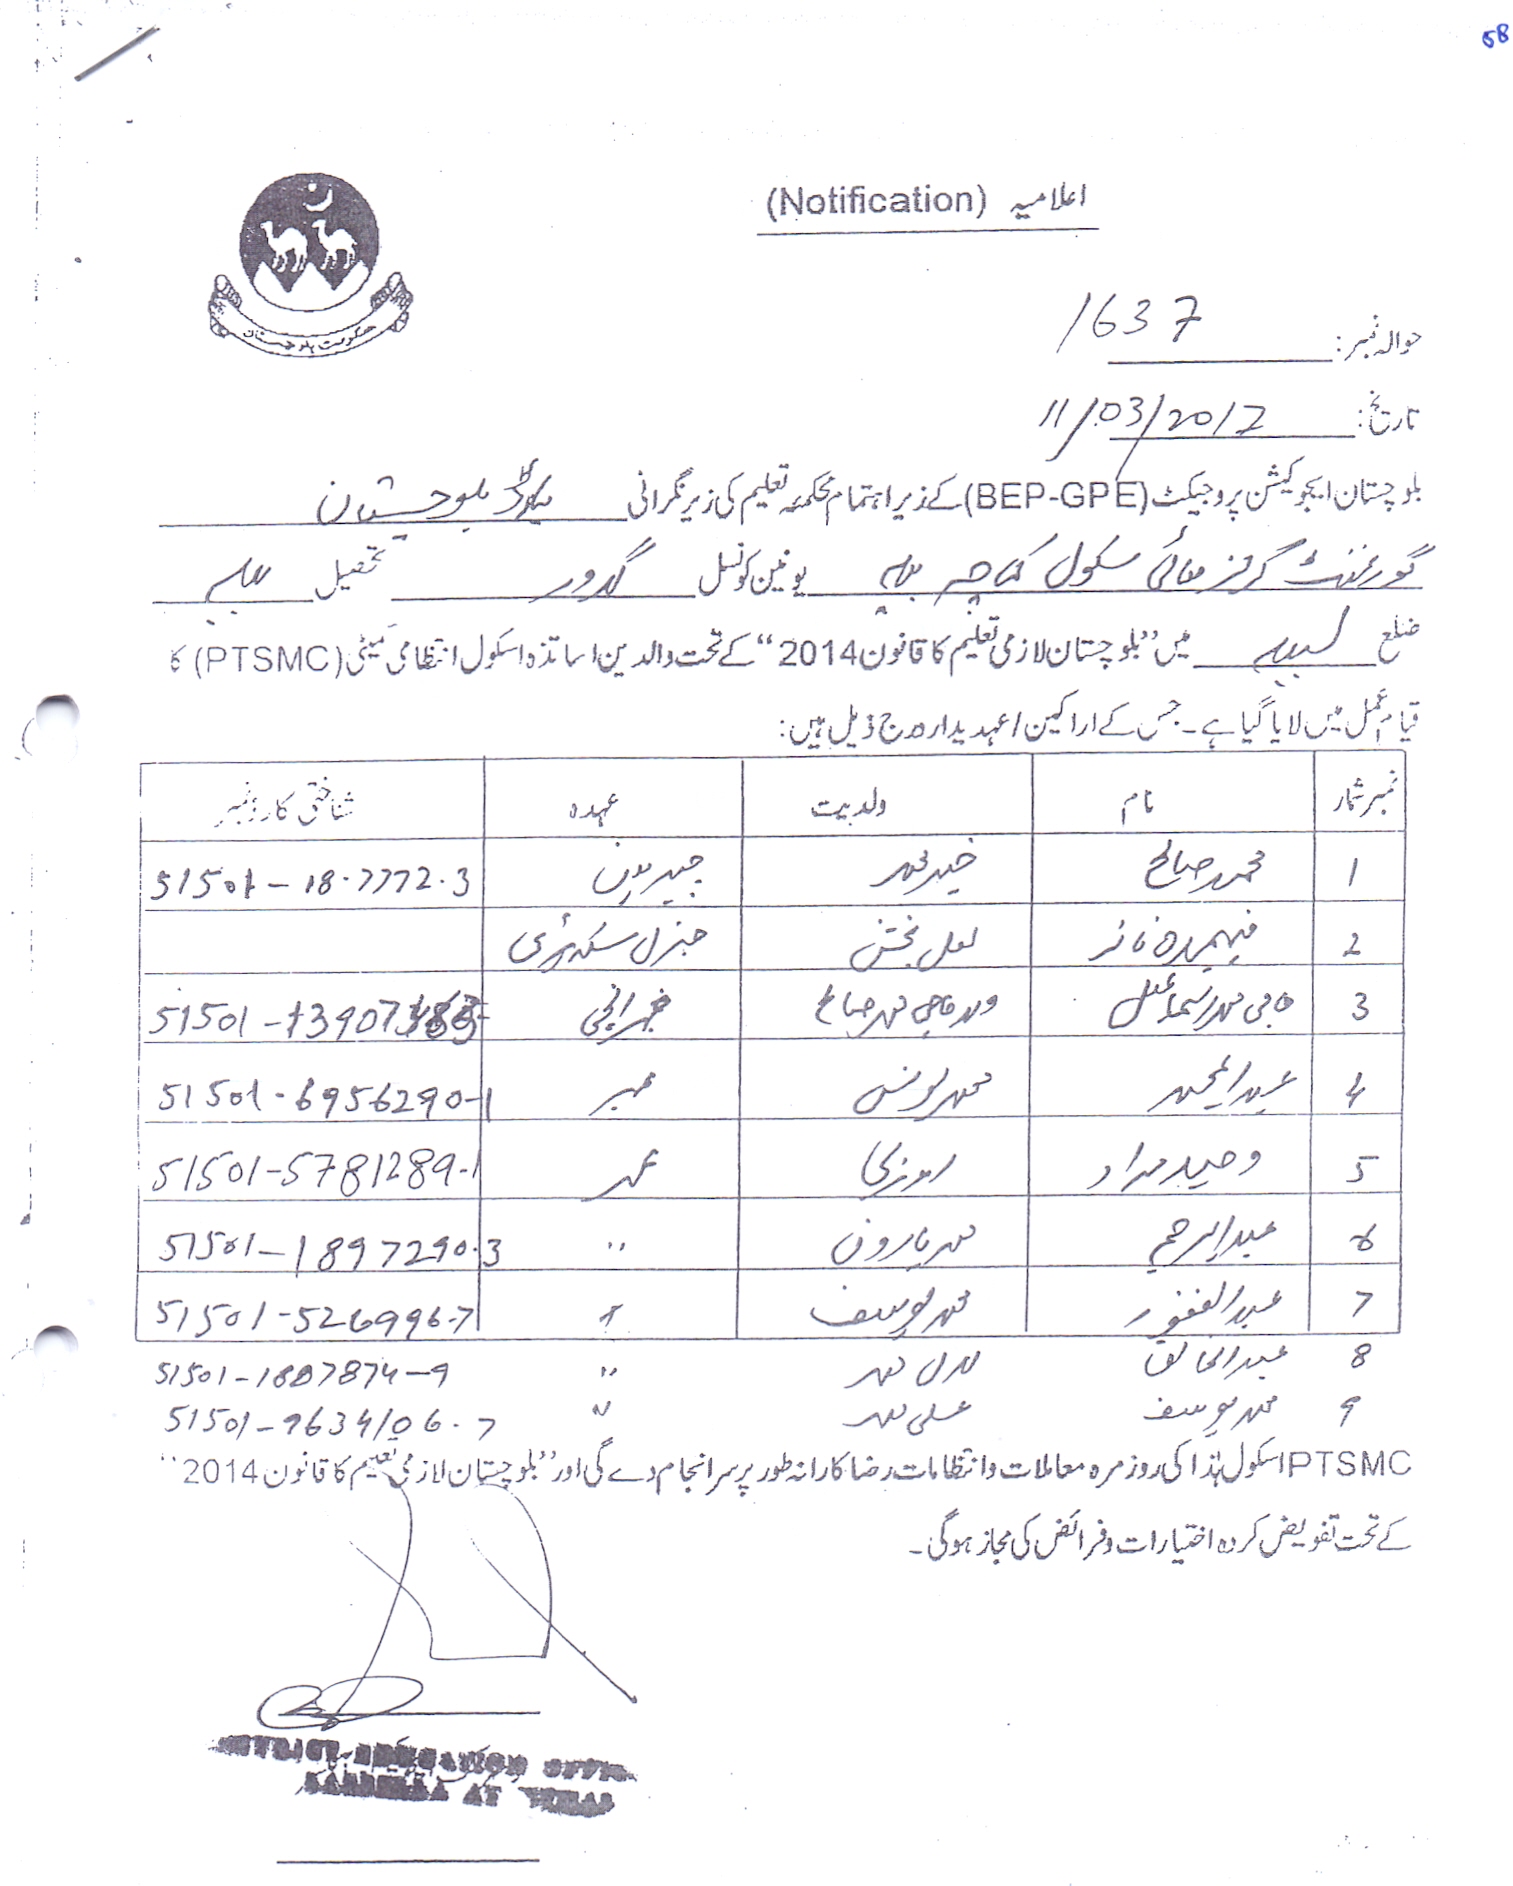 58
اعلامیہ (Notification)
حکومت بلوچستان
حوالہ نمبر: 1637
تاریخ: 11/03/2017
بلوچستان ایجوکیشن پروجیکٹ (BEP-GPE) کے زیر اہتمام محکمہ تعلیم کی زیر نگرانی بلوچستان
گورنمنٹ گرلز ہائی سکول یونین کونسل تحصیل
ضلع لسبیلہ میں "بلوچستان لازمی تعلیم کا قانون 2014" کے تحت والدین اساتذہ اسکول انتظامی کمیٹی (PTSMC) کا
قیام عمل میں لایا گیا ہے۔ جس کے اراکین / عہدیدار درج ذیل ہیں:
نمبر شمار نام ولدیت عہدہ شناختی کارڈ نمبر
1 محمد صالح خیر محمد چیئرمین 51501-18.7772.3
2 فہمیدہ لعل بخش جنرل سیکرٹری
3 حاجی محمد اسماعیل ولد حاجی محمد صالح خزانچی 51501
4 محمد یونس ممبر 51501-6956290-1
5 وحید مراد ممبر 51501-5781289-1
6 عبدالرحیم محمد ہارون " 51501-1897290.3
7 عبدالغفور محمد یوسف " 51501-526996-7
8 عبدالخالق لعل محمد " 51501-1887874-9
9 محمد یوسف علی محمد " 51501-9634106-7
PTSMC اسکول ہذا کی روزمرہ معاملات و انتظامات رضاکارانہ طور پر سرانجام دے گی اور "بلوچستان لازمی تعلیم کا قانون 2014"
کے تحت تفویض کردہ اختیارات و فرائض کی مجاز ہوگی۔
DISTRICT EDUCATION OFFICER
LASBELA AT UTHAL